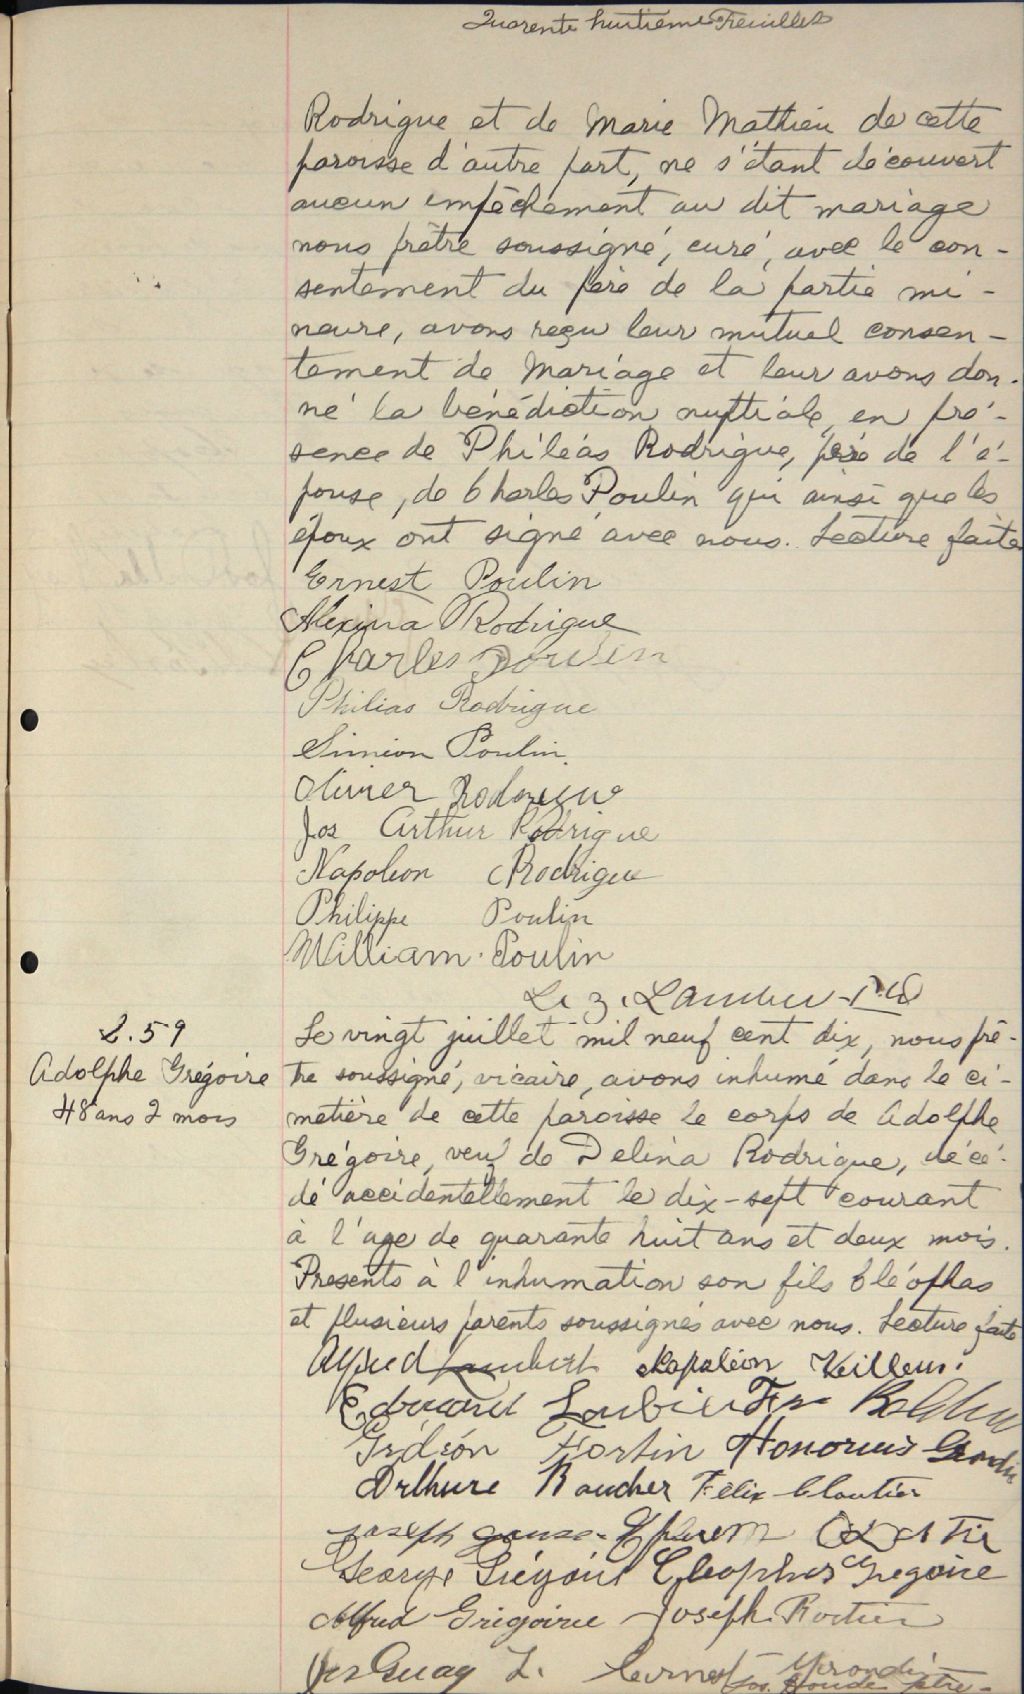 Quarente huitieme Feuillet
Rodrigue et de Marie Mathieu de cette
paroisse d'autre part, ne s'étant découvert
aucun empêchement au dit mariage
nous prêtre soussigné, curé, avec le con-
sentement du père de la partie mi-
neure, avons reçu leur mutuel consen-
tement de Mariage et leur avons don-
né la bénédiction nuptiale, en pré-
sence de Philéas Rodrigue, père de l'é-
pouse, de Charles Poulin qui ainsi que les
époux ont signé avec nous. Lecture faite
Ernest Poulin
Alexina Rodrigue
Charles Poulin
Philias Rodrigue
Simion Poulin.
Olivier Rodrigue
Jos Arthur Rodrigue
Napoleon Rodrigue
Philippe Poulin
William Poulin
L. Z. Lambert
S. 59
Adolphe Grégoire
48 ans 2 mois
Le vingt juillet mil neuf cent dix, nous prê-
tre soussigné, vicaire, avons inhumé dans le ci-
metière de cette paroisse le corps de Adolphe
Grégoire, veuf de Delina Rodrigue, décé-
dé accidentellement le dix-sept courant
à l'age de quarante huit ans et deux mois.
Presents à l'inhumation son fils Cléophas
et plusieurs parents soussignés avec nous. Lecture faite
Alfred Lambert Napoléon Veilleux
Edouard
Gédéon Fortin Honorius Grondin
Arthure Boucher Felix Cloutier
Joseph
George Grégoire Cleophas Gregoire
Alfred Grégoire Joseph
Jos Guay
Jos. ptre